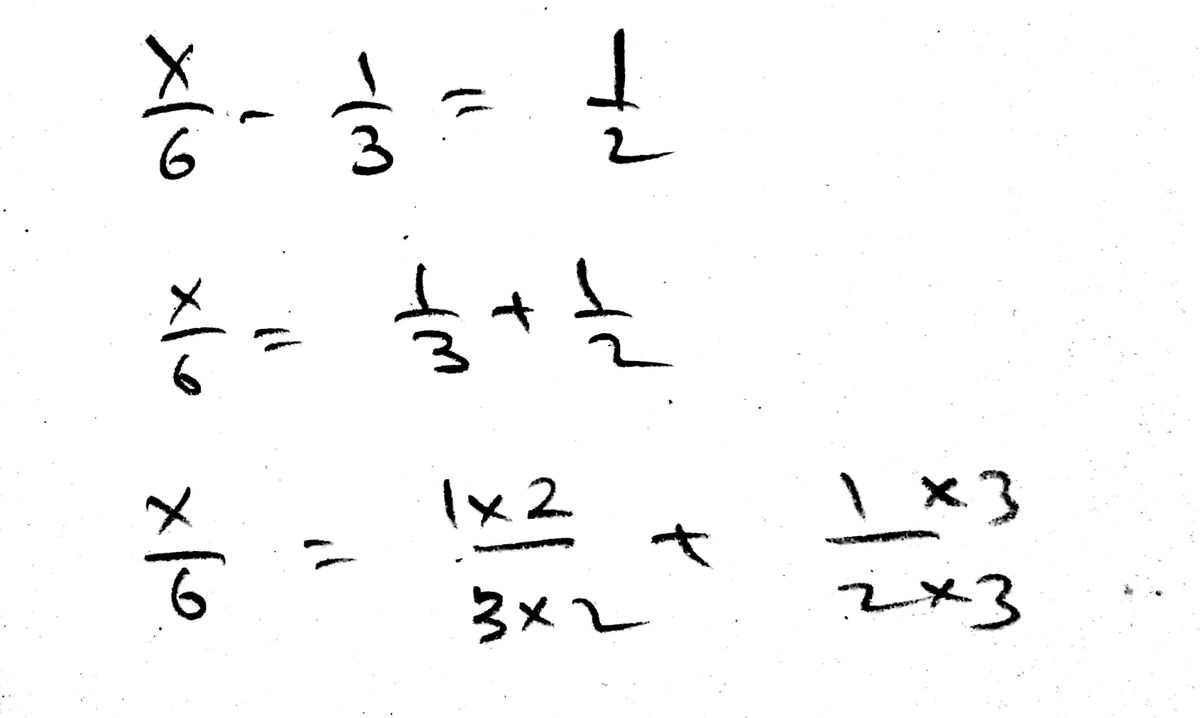 x/6 - 1/3 = 1/2
x/6 = 1/3 + 1/2
x/6 = 1×2/3×2 + 1×3/2×3